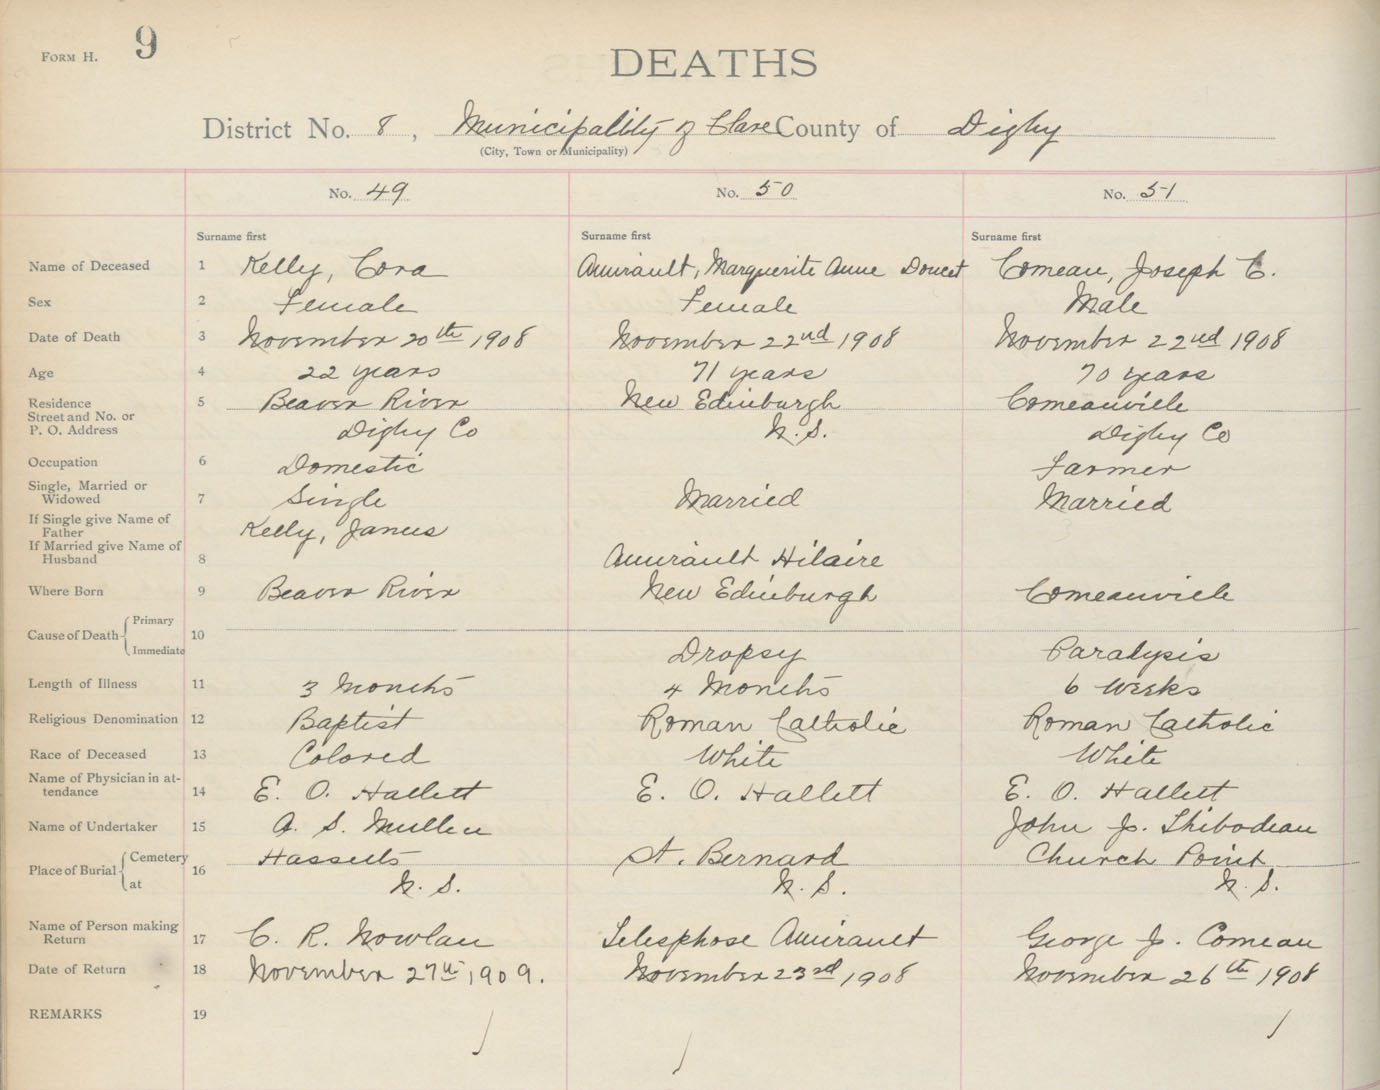 FORM H. 9
DEATHS
District No. 8, Municipality of Clare County of Digby
(City, Town or Municipality)
No. 49 No. 50 No. 51
Surname first Surname first Surname first
Name of Deceased 1 Kelly, Cora Amirault, Marguerite Anne Doucet Comeau, Joseph C.
Sex 2 Female Female Male
Date of Death 3 November 20th 1908 November 22nd 1908 November 22nd 1908
Age 4 22 years 71 years 70 years
Residence 5 Beaver River New Edinburgh Comeauville
Street and No. or
P. O. Address Digby Co N.S. Digby Co
Occupation 6 Domestic Farmer
Single, Married or
Widowed 7 Single Married Married
If Single give Name of
Father Kelly, James
If Married give Name of
Husband 8 Amirault Hilaire
Where Born 9 Beaver River New Edinburgh Comeauville
Cause of Death 10 Primary
Immediate Dropsy Paralysis
Length of Illness 11 3 Months 4 Months 6 weeks
Religious Denomination 12 Baptist Roman Catholic Roman Catholic
Race of Deceased 13 Colored White White
Name of Physician in at-
tendance 14 E. O. Hallett E. O. Hallett E. O. Hallett
Name of Undertaker 15 A. S. Mullen John J. Thibodeau
Place of Burial 16 Cemetery Hassetts St. Bernard Church Point
at N. S. N. S. N. S.
Name of Person making
Return 17 C. R. Nowlan Telesphose Amirault George J. Comeau
Date of Return 18 November 27th 1909. November 23rd 1908 November 26th 1908
REMARKS 19